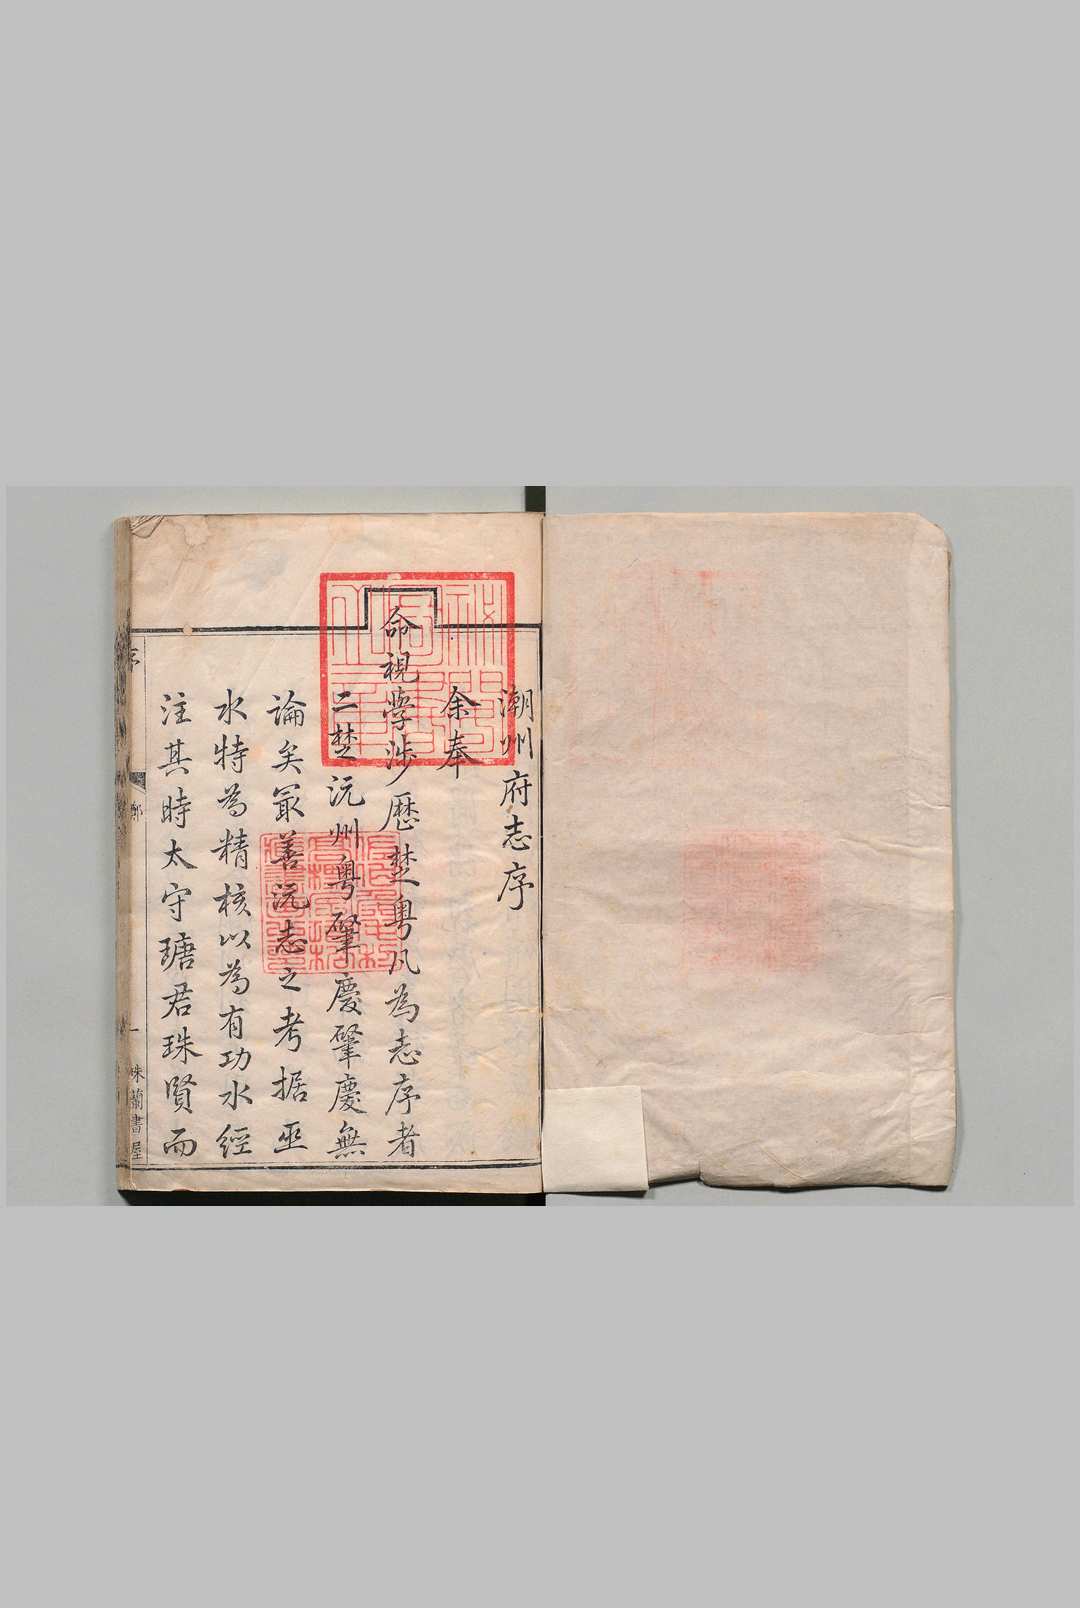 潮州府志序
余奉
命視學涉歷楚粵凡為志序者
二楚沅州粵肇慶肇慶無
論矣冣善沅志之考据巫
水特為精核以為有功水經
注其時太守瑭君珠賢而
序
鄭
一
珠蘭書屋